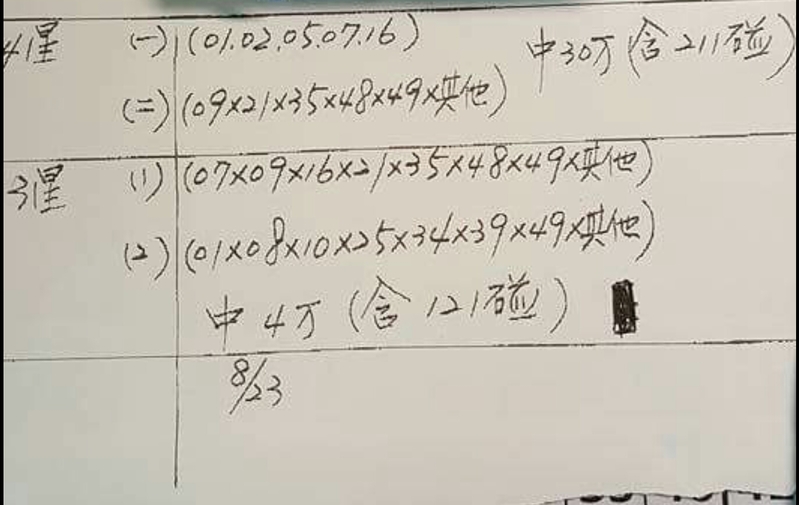 4星 (一) (01.02.05.07.16) 中30万(含211碰)
(二) (09×21×35×48×49×其他)
3星 (1) (07×09×16×21×35×48×49×其他)
(2) (01×08×10×25×34×39×49×其他)
中4万(含121碰)
8/23